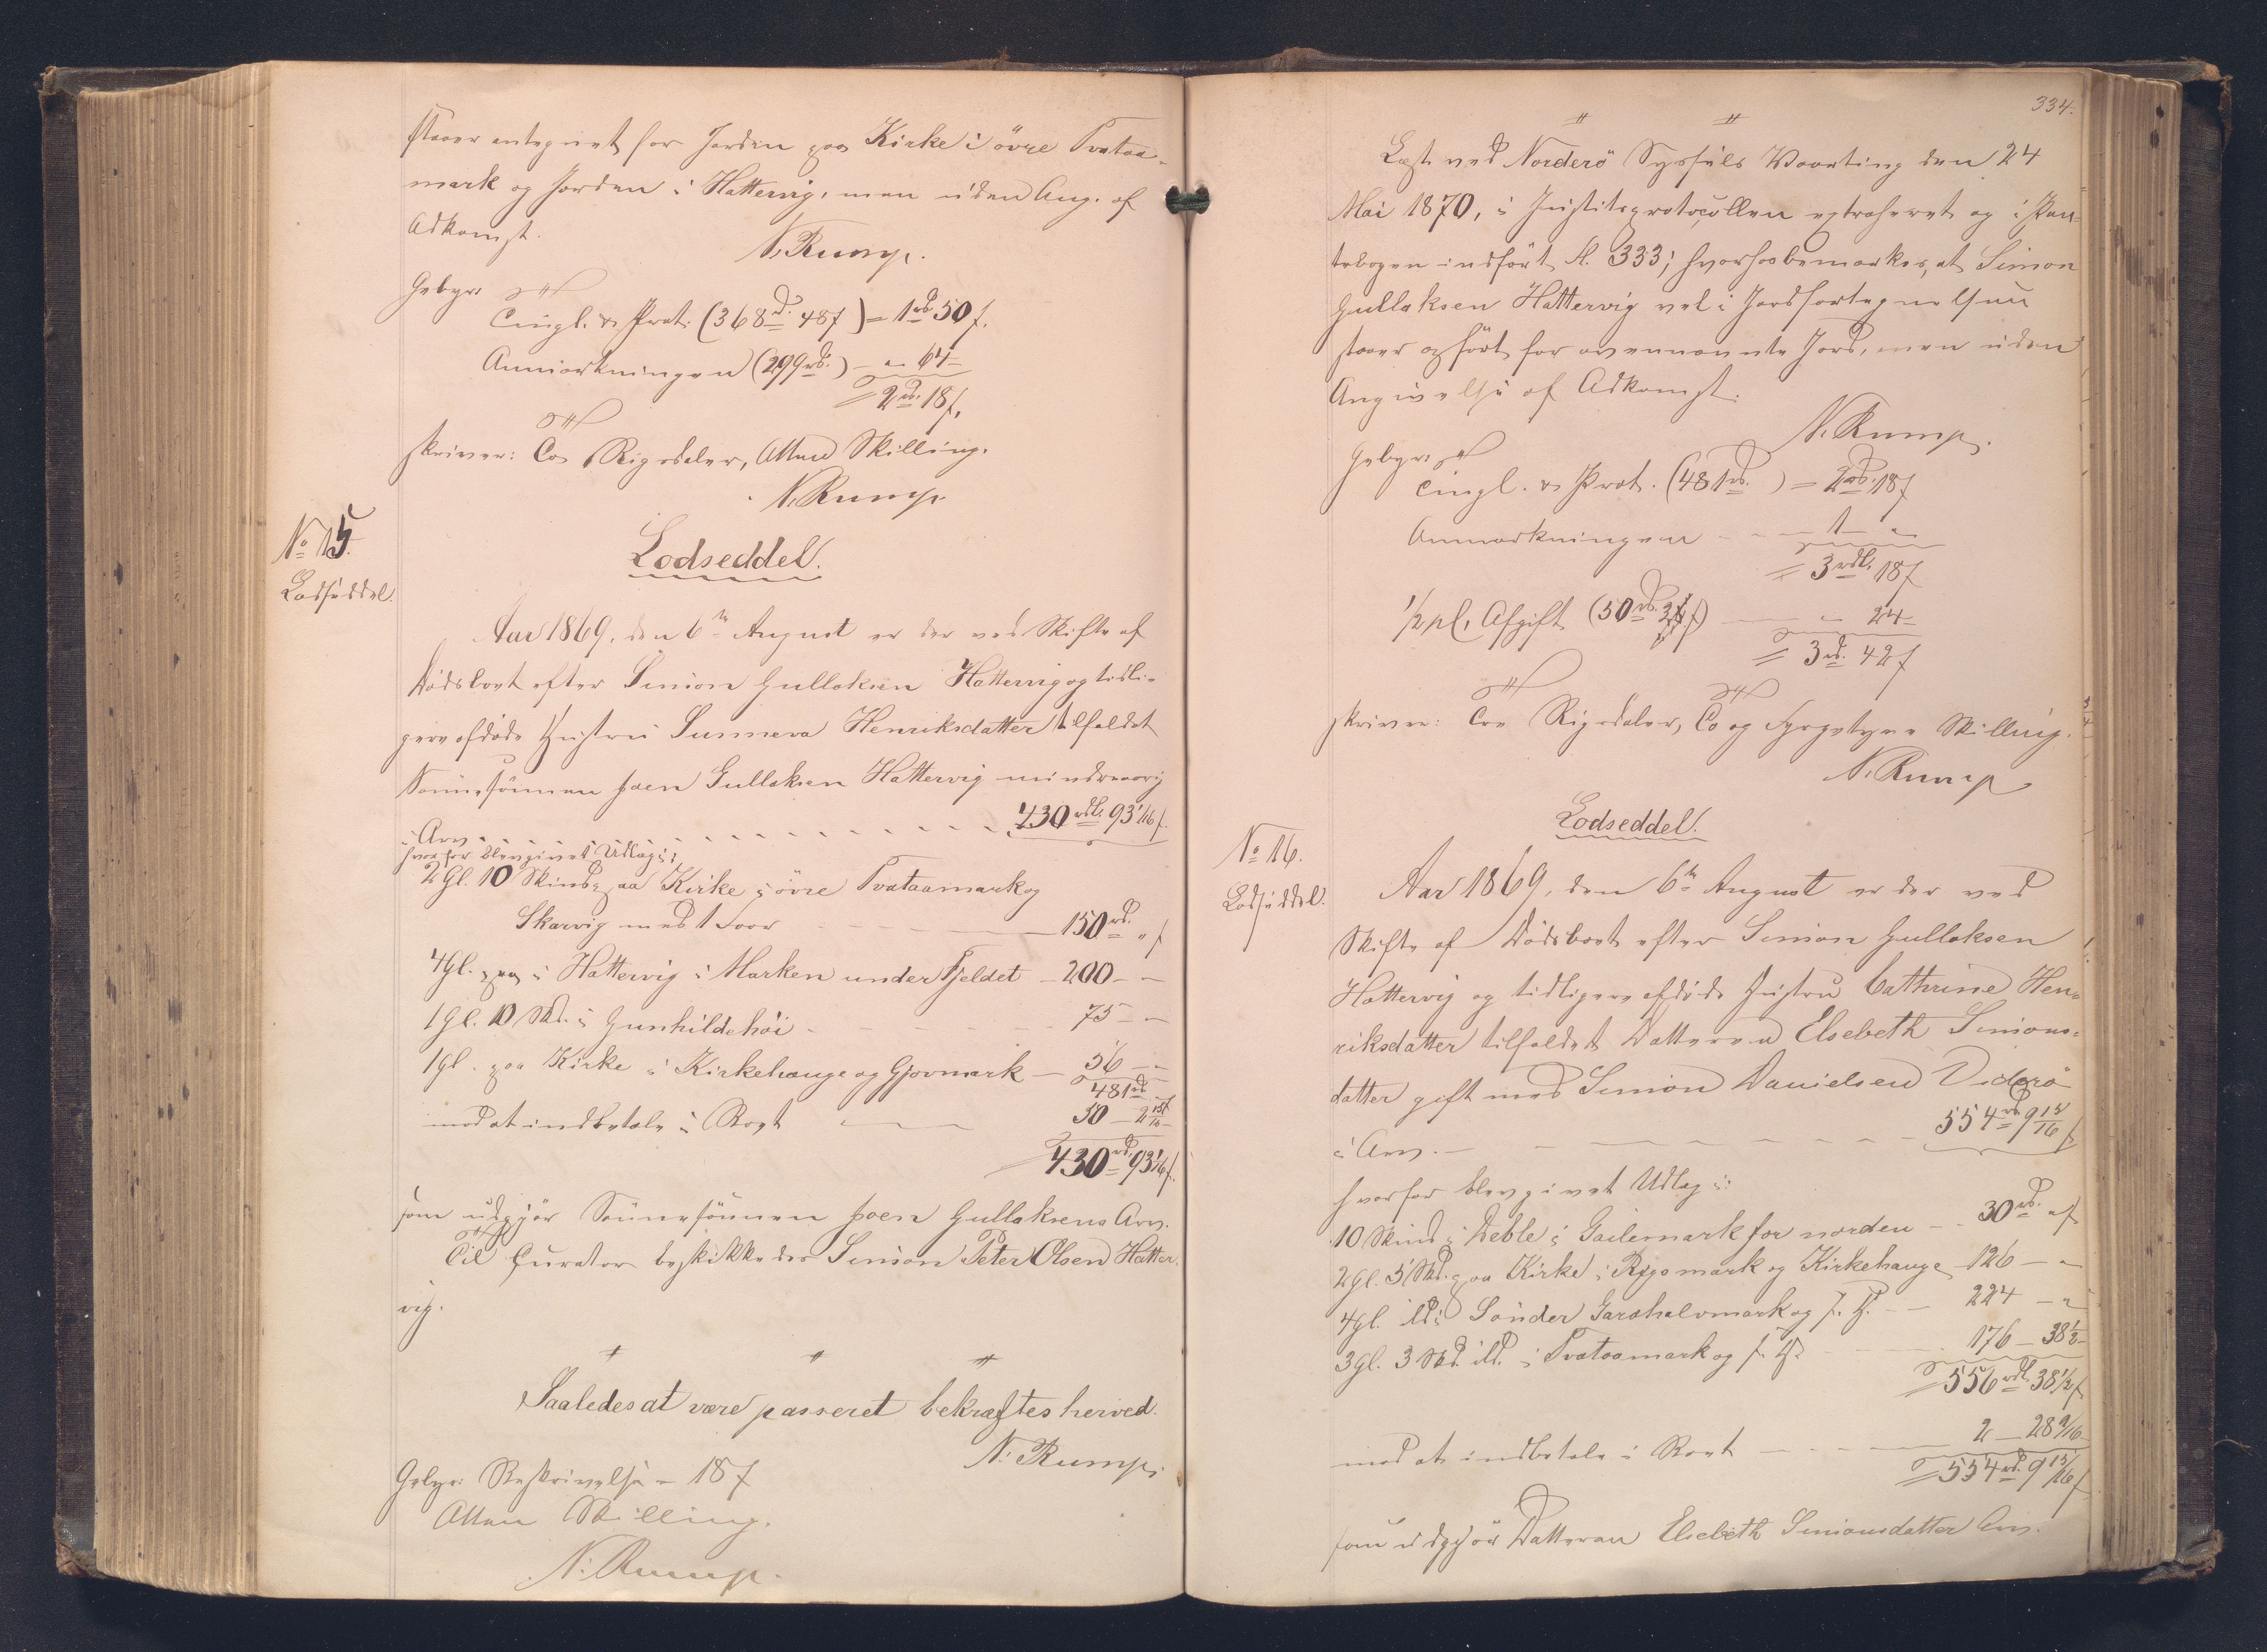 staaer antegnet for Jorden paa Kirke i övre Tvataa-
mark og Jorden i Hattervig, men uden Ang. af
Adkomst.
N. Rump.
Gebyr:
Tingl. & Prot. (368rd. 48ſ) = 1rd 50ſ.
Anmærkningen (299rd.) - „ 64 -
= 2rd. 18ſ.
skriver: To Rigsdaler, Atten Skilling.
N. Rump.
No 15.
Lodseddel.
Lodseddel.
Aar 1869, den 6te August er der ved Skifte af
Dödsboet efter Simon Gullaksen Hattervig og tidli-
gere afdöde Hustru Sunneva Henriksdatter tilfaldet
Sönnesönnen Joen Gullaksen Hattervig mindreaarig
i Arv - - - - - 430rdl. 93 1/16ſ.
hvorfor blev givet Udlæg i:
2 Gl. 10 Skind paa Kirke i övre Tvataamark og
Skarvig med 1 Foer - - - 150rd. „ ſ
4 Gl. paa i Hattervig i Marken under Fjeldet - 200 - -
1 Gl. 10 Skd. i Gunhildehöi - - - 75 - -
1 Gl. paa Kirke i Kirkehauge og Gjovmark - 56 - -
481rd
mod at indbetale i Boet - 50 - 2 15/16
= 430rd. 93 1/16ſ.
som udgjör Sönnesönnen Joen Gullaksens Arv.
Til Curator beskikkedes Simon Peter Olsen Hatter-
vig.
Saaledes at være passeret bekræftes herved.
N. Rump.
Gebyr: Beskrivelse = 18ſ
Atten Skilling.
N. Rump.
334.
Læst ved Norderö Syssels Vaarting den 24
Mai 1870, i Justitsprotocollen extraheret og i Pan-
tebogen indfört fl. 333; hvorhos bemærkes, at Simon
Gullaksen Hattervig vel i Jordfortegnelsen
staaer opfört for ovennævnte Jord, men uden
Angivelse af Adkomst.
N. Rump.
Gebyr:
Tingl. & Prot. (481rd.) = 2rd. 18ſ
Anmærkningen - - 1 - „
= 3rdl. 18ſ
1/2 pCt. Afgift (50rd. ) - „ 24 -
= 3rd. 42ſ
skriver: Tre Rigsdaler, To og Fyrgetyve Skilling.
N. Rump
No 16.
Lodseddel.
Lodseddel.
Aar 1869, den 6te August er der ved
Skifte af Dödsboet efter Simon Gullaksen
Hattervig og tidligere afdöde Hustru Cathrine Hen-
riksdatter tilfaldet Datteren Elsebeth Simons-
datter gift med Simon Danielsen Viderö
i Arv. - - - 554rd 9 15/16ſ
hvorfor blev givet Udlæg i:
10 Skind i Deble i Gailemark for norden - - 30rd. „ ſ
2 Gl. 5 Skd. paa Kirke i Rygsmark og Kirkehauge 126 - „
4 Gl. ibd. i Sönder Garshalvmark og f. H. - - 224 - „
3 Gl. 3 Skd. ibd. i Tvataamark og f. H. - 176 - 38 1/2 -
= 556rdl. 38 1/2ſ
mod at indbetale i Boet - - - 2 - 28 9/16 -
= 554rd. 9 15/16ſ
som udgjör Datteren Elsebeth Simonsdatter Arv.